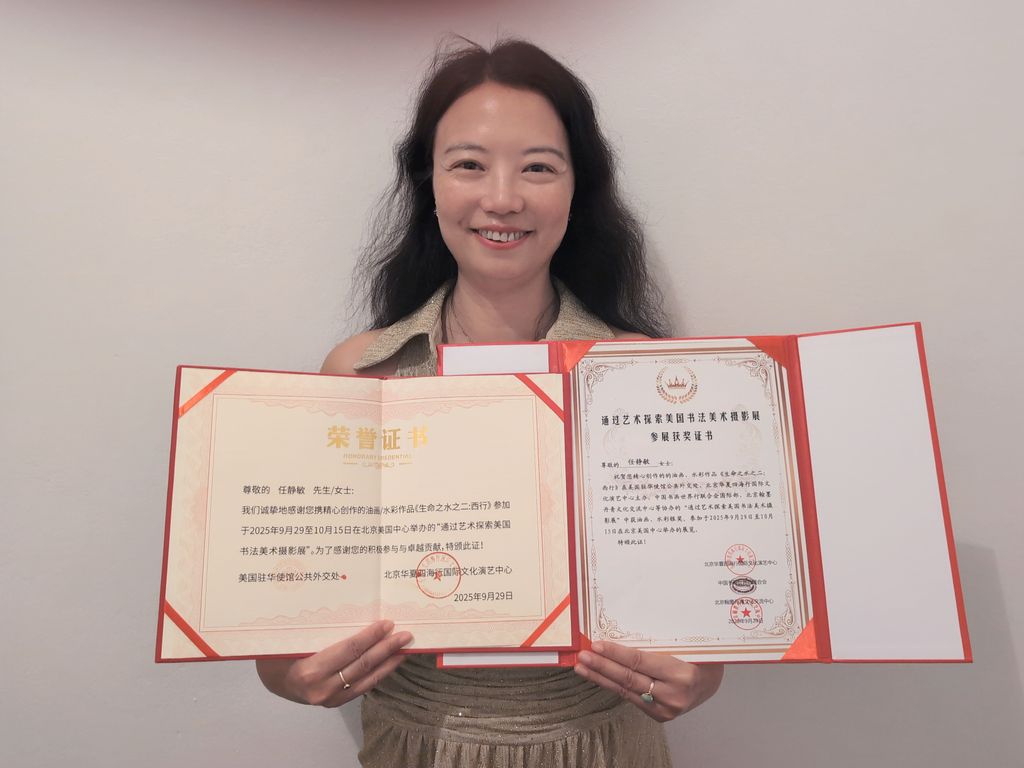 荣誉证书
HONORARY CREDENTIAL
尊敬的 任静敏 先生/女士:
我们诚挚地感谢您携精心创作的油画/水彩作品《生命之水之二:西行》参加
于2025年9月29至10月15日在北京美国中心举办的“通过艺术探索美国
书法美术摄影展”。为了感谢您的积极参与与卓越贡献,特颁此证!
美国驻华使馆公共外交处
北京华夏四海行国际文化演艺中心
2025年9月29日
通过艺术探索美国书法美术摄影展
参展获奖证书
尊敬的 任静敏 女士:
祝贺您精心创作的的油画、水彩作品《生命之水之二:
西行》在美国驻华使馆公共外交处、北京华夏四海行国际文
化演艺中心主办、中国书画世界行联合会国际部、北京翰墨
丹青文化交流中心等协办的“通过艺术探索美国书法美术摄
影展”中获油画、水彩银奖,参加于2025年9月29日至10月
15日在北京美国中心举办的展览。
特颁此证!
北京华夏四海行国际文化演艺中心
2025年9月29日